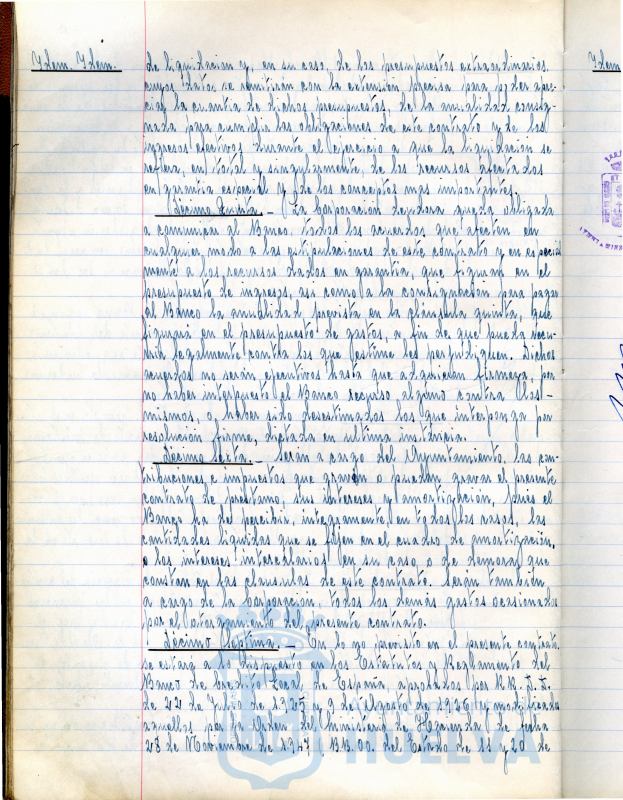 Ydem. Ydem.
de liquidacion y, en su caso, de los presupuestos extraordinarios
cuyos datos se remitirán con la extensión precisa para poder apre-
ciar la cuantía de dichos presupuestos, de la anualidad consig-
nada para cumplir las obligaciones de este contrato y de los
ingresos efectivos durante el ejercicio a que la liquidación se
refiera, en total y singularmente, de los recursos afectados
en garantia especial y de los conceptos mas importantes.
Décimo Quinta.- La Corporación deudora queda obligada
a comunicar al Banco todos los acuerdos que afecten en
cualquier modo a las estipulaciones de este contrato y en especial
mente a los recursos dados en garantía, que figuran en el
presupuesto de ingresos, asi como a la consignación para pagar
al Banco la anualidad prevista en la clausula quinta, que
figurará en el presupuesto de gastos, a fin de que pueda recu-
rrir legalmente contra los que estime les perjudiquen. Dichos
acuerdos no serán ejecutivos hasta que adquieran firmeza, por
no haber interpuesto el Banco recurso alguno contra los
mismos, o haber sido desestimados los que interponga por
resolución firme, dictada en ultima instancia.
Décimo Sexta.- Serán a cargo del Ayuntamiento las con-
tribuciones e impuestos que graven o puedan gravar el presente
contrato de prestamo, sus intereses y amortización, pués el
Banco ha de percibir, integramente, en todos los casos, las
cantidades liquidas que se fijen en el cuadro de amortización,
o los intereses intercalarios en su caso, o de demora que
constan en las clausulas de este contrato. Serán también
a cargo de la Corporación todos los demás gastos ocasionados
por el otorgamiento del presente contrato.
Décimo Septima.- En lo no previsto en el presente contrato
se estará a lo dispuesto en los Estatutos y Reglamento del
Banco de Credito Local de España, aprobados por RR. D.D.
de 22 de Julio de 1925 y 9 de Agosto de 1926 y modificados
aquellos por Orden del Ministerio de Hacienda de fecha
28 de Noviembre de 1947, BB.OO. del Estado de 11 y 20 de
Ydem
HUELVA